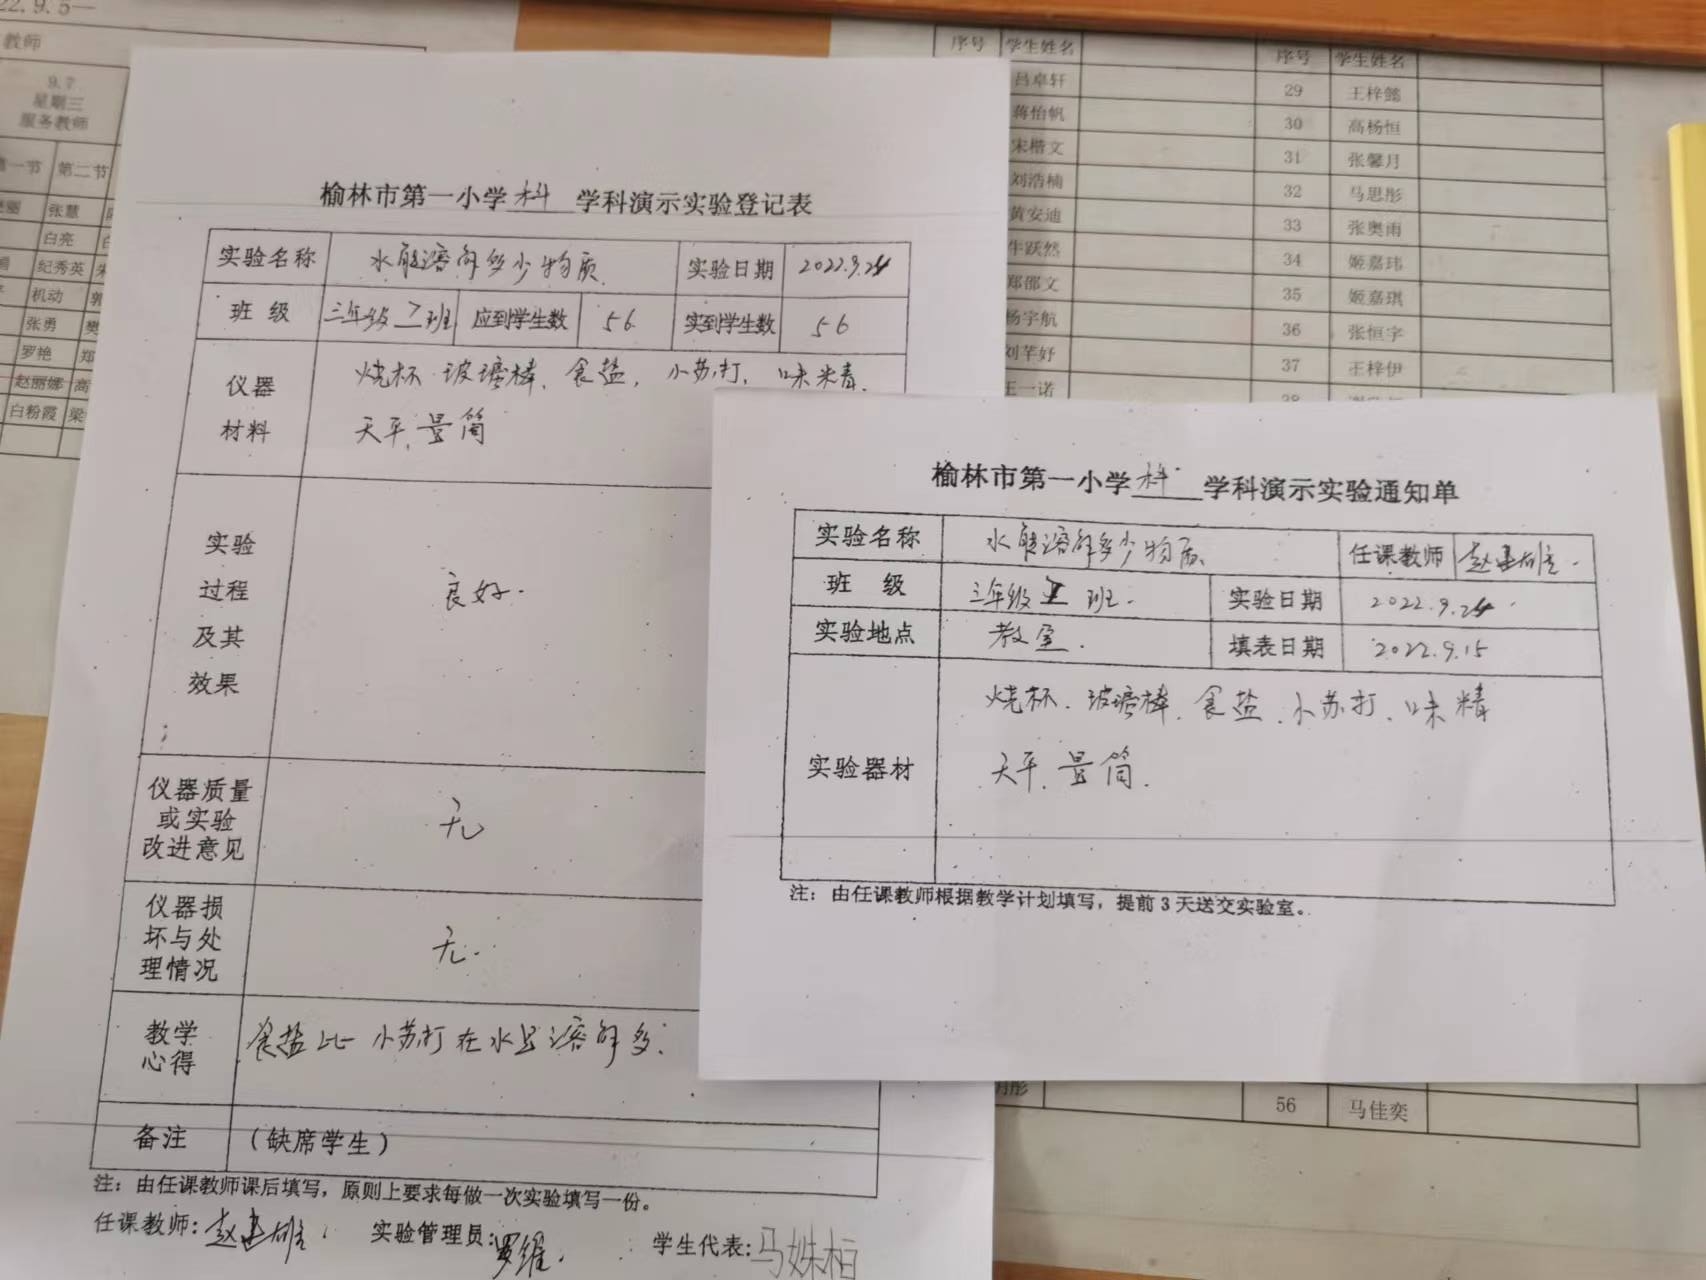 22.9.5—
教师
9.7
星期三
服务教师
第一节 第二节
张慧
白亮
纪秀英
机动
张勇
罗艳
赵丽娜
白粉霞
序号 学生姓名 序号 学生姓名
吕卓轩 29 王梓懿
蒋怡帆 30 高杨恒
宋楷文 31 张馨月
刘浩楠 32 马思彤
黄安迪 33 张奥雨
牛跃然 34 姬嘉玮
郑邵文 35 姬嘉琪
杨宇航 36 张恒宇
刘芊妤 37 王梓伊
王一诺 38
56 马佳奕
榆林市第一小学科 学科演示实验登记表
实验名称 水能溶解多少物质 实验日期 2022.9.24
班 级 三年级 7 班 应到学生数 56 实到学生数 56
仪器材料 烧杯 玻璃棒、食盐、小苏打、味精、
天平、量筒
实验
过程
及其
效果
良好.
仪器质量
或实验
改进意见
无
仪器损
坏与处
理情况
无.
教学
心得
食盐比小苏打在水里溶解多.
备注 （缺席学生）
注：由任课教师课后填写，原则上要求每做一次实验填写一份。
任课教师：赵建雄 实验管理员：罗维 学生代表：马姝桓
榆林市第一小学科 学科演示实验通知单
实验名称 水能溶解多少物质 任课教师 赵建雄
班 级 三年级 班. 实验日期 2022.9.24
实验地点 教室. 填表日期 2022.9.15
实验器材 烧杯、玻璃棒、食盐、小苏打、味精
天平、量筒.
注：由任课教师根据教学计划填写，提前3天送交实验室。